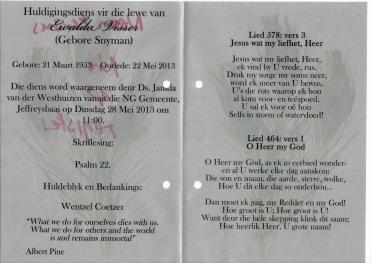 Huldigingsdiens vir die lewe van
Ewalda Visser
(Gebore Snyman)
Gebore: 21 Maart 1953 Oorlede: 22 Mei 2013
Die diens word waargeneem deur Ds. Janida
van der Westhuizen vanuit die NG Gemeente,
Jeffreysbaai op Dinsdag 28 Mei 2013 om
11:00.
Skriflesing:
Psalm 22.
Huldeblyk en Bedankings:
Wentzel Coetzer
“What we do for ourselves dies with us.
What we do for others and the world
is and remains immortal”
Albert Pine
Lied 578: vers 3
Jesus wat my liefhet, Heer
Jesus wat my liefhet, Heer,
ek vind by U vrede, rus.
Druk my sorge my soms neer,
word ek meer van U bewus.
U's die rots waarop ek bou
al kom voor- en teëspoed.
U sal ek voor oë hou
Selfs in storm of watervloed!
Lied 464: vers 1
O Heer my God
O Heer my God, as ek in eerbied wonder-
en al U werke elke dag aanskou:
Die son en maan, die aarde, sterre, wolke,
Hoe U dit elke dag so onderhou...
Dan moet ek jug, my Redder en my God!
Hoe groot is U; Hoe groot is U!
Want deur die hele skepping klink dit saam;
Hoe heerlik Heer, U grote naam!